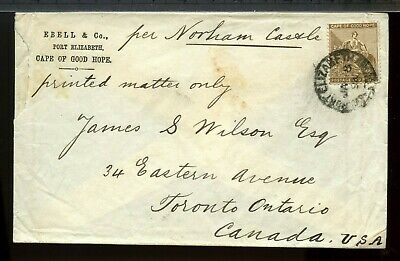 EBELL & Co.,
PORT ELIZABETH,
CAPE OF GOOD HOPE.
per Norham Castle
printed matter only
CAPE OF GOOD HOPE
PORT ELIZABETH
James S Wilson Esq
34 Eastern Avenue
Toronto Ontario
Canada. USA